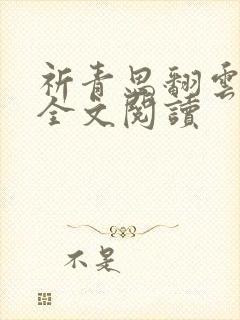 祈青思翻雲
全文閱讀
不是